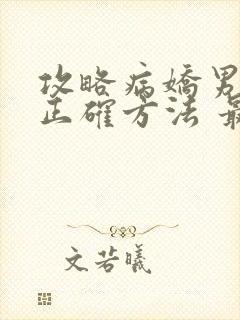 攻略病嬌男
正確方法 最
文若曦